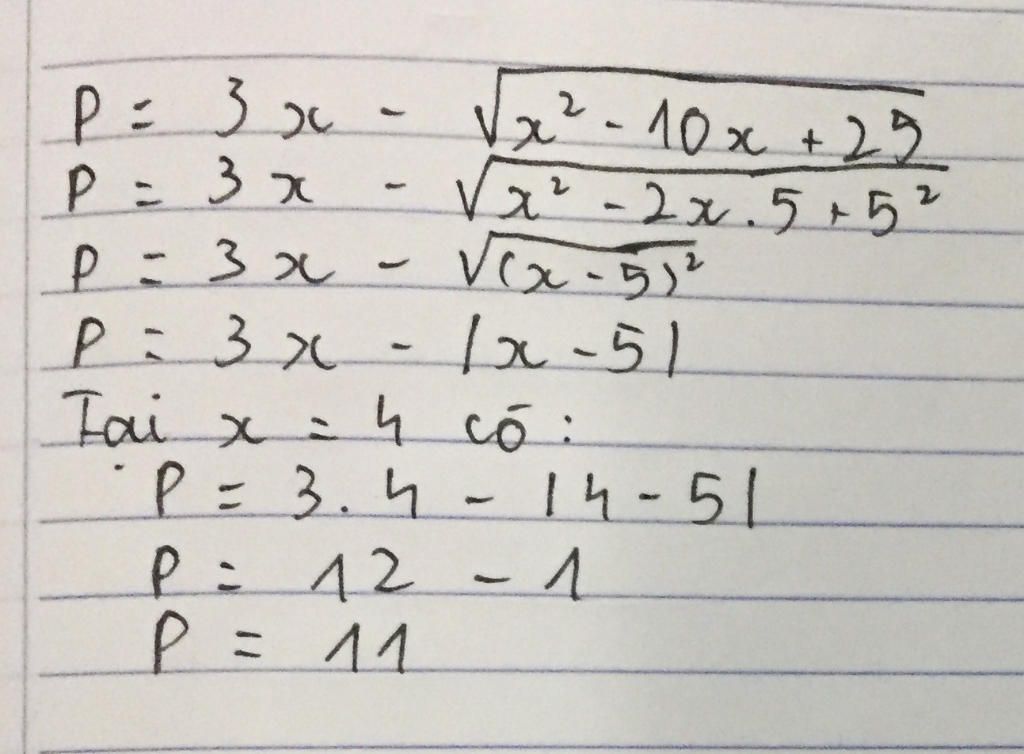 P = 3x - √(x² - 10x + 25)
P = 3x - √(x² - 2x . 5 + 5²)
P = 3x - √((x - 5)²)
P = 3x - |x - 5|
Tại x = 4 có :
P = 3 . 4 - |4 - 5|
P = 12 - 1
P = 11